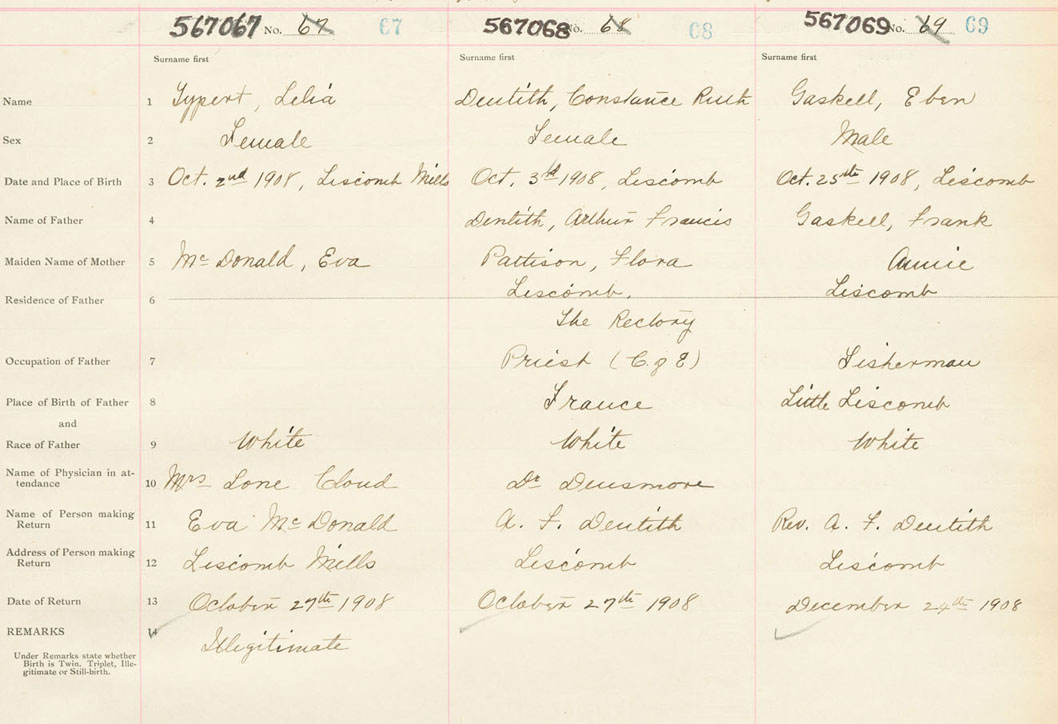 567067 No. 67 67 567068 No. 68 68 567069 No. 69 69
Surname first Surname first Surname first
Name 1 Typert, Lelia Dentith, Constance Ruth Gaskell, Eben
Sex 2 Female Female Male
Date and Place of Birth 3 Oct. 2nd 1908, Liscomb Mills Oct. 3rd 1908, Liscomb Oct. 25th 1908, Liscomb
Name of Father 4 Dentith, Arthur Francis Gaskell, Frank
Maiden Name of Mother 5 Mc Donald, Eva Pattison, Flora Annie
Residence of Father 6 Liscomb, Liscomb
The Rectory
Occupation of Father 7 Priest (C. of E) Fisherman
Place of Birth of Father 8 France Little Liscomb
and
Race of Father 9 White White White
Name of Physician in at-
tendance 10 Mrs Lone Cloud Dr Densmore
Name of Person making
Return 11 Eva Mc Donald A. F. Dentith Rev. A. F. Dentith
Address of Person making
Return 12 Liscomb Mills Liscomb Liscomb
Date of Return 13 October 27th 1908 October 27th 1908 December 24th 1908
REMARKS 14 Illegitimate
Under Remarks state whether
Birth is Twin, Triplet, Ille-
gitimate or Still-birth.